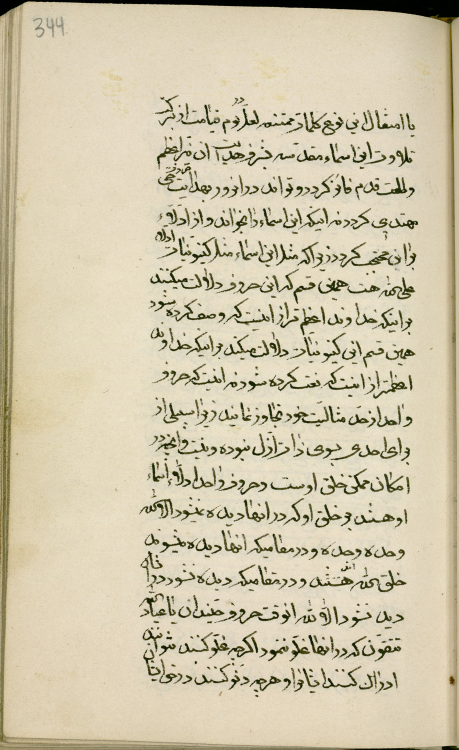 344
یا امثال این نوع کلمات ممتنعه لعل در یوم قیامت از برکت
تلاوت این اسماء مقدسه بشرف هدایت آن نیر اعظم
و طلعت قدم فائز گردد و تواند در آن روز بهدایت
مهتدی گردد نه اینکه این اسماء را بخواند و از ادلاء
بر این محتجب گردد زیرا که مثل این اسماء مثل کینونیات ادلاء
علی الله هست همین قسم که این حروف دلالت میکنند
بر اینکه خداوند اعظم تر از اینست که وصف کرده شود
همین قسم این کینونیات دلالت میکند بر اینکه خداوند
اعظمتر از اینست که نعت کرده شود نه اینست که حروف
واحد از حد مثالیت خود تجاوز نمایند زیرا سبیلی از
برای احدی بسوی ذات ازل نبوده و نیست و آنچه در
امکان ممکن خلق اوست و حروف واحد ادلاء اسماء
او هستند در خلق او که در انها دیده نمیشود الا الله
وحده وحده و در مقامیکه انها دیده میشوند
خلق الله هستند و در مقامیکه دیده نشود در انها
دیده نشود الا الله اتقوا حروف حیند ان یا عباد الله
تتقون که در انها غلو ننمود اگر چه غلو کنند نتوانند
ادراک کنند ایشانرا و هر چه دنو کنند در حق ایشان